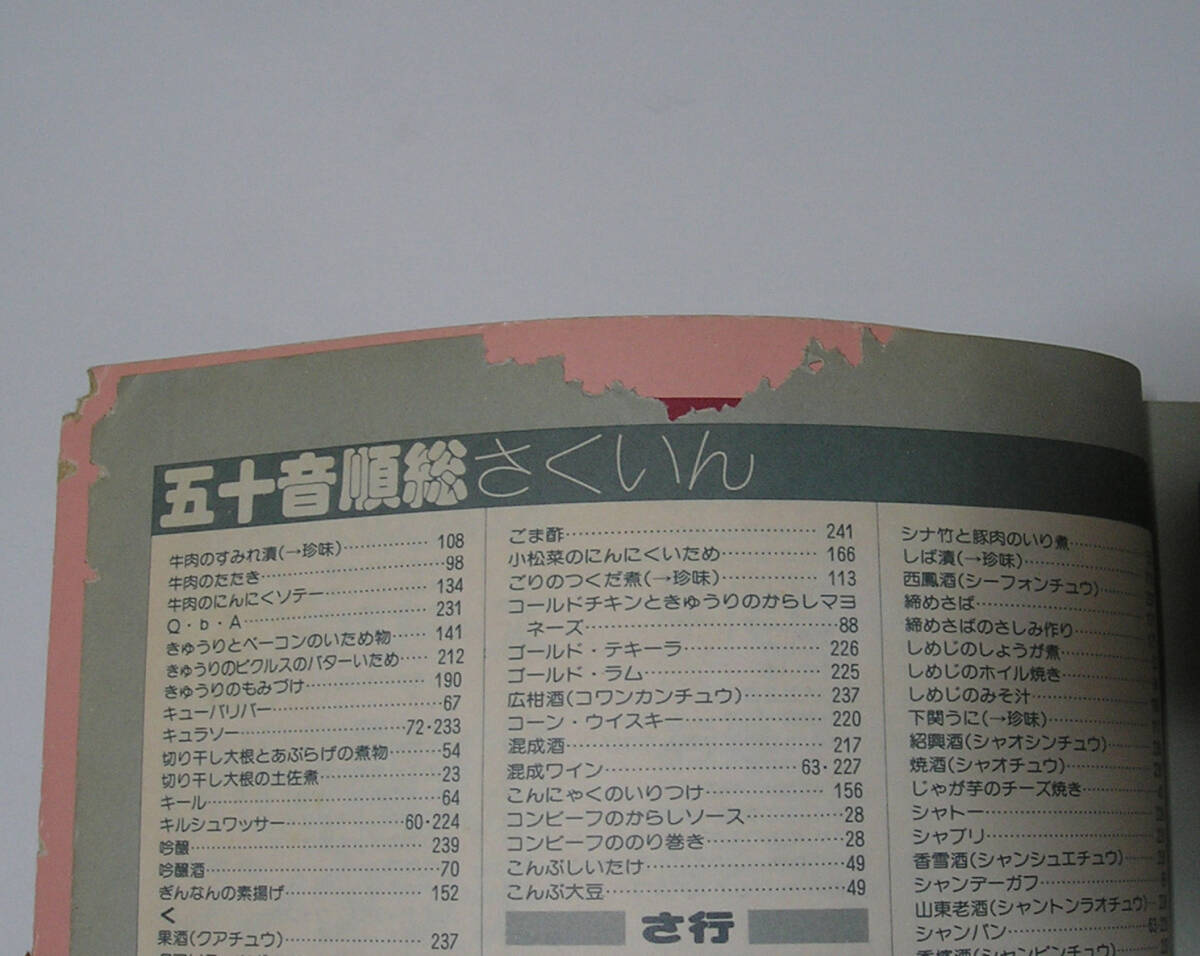 五十音順総さくいん
牛肉のすみれ漬(→珍味)…………… 108
牛肉のたたき……………………………98
牛肉のにんにくソテー……………… 134
Q・b・A……………………………… 231
きゅうりとベーコンのいため物…… 141
きゅうりのピクルスのバターいため…… 212
きゅうりのもみづけ………………… 190
キューバリバー…………………………67
キュラソー……………………… 72・233
切り干し大根とあぶらげの煮物………54
切り干し大根の土佐煮…………………23
キール……………………………………64
キルシュワッサー……………… 60・224
吟醸…………………………………… 239
吟醸酒……………………………………70
ぎんなんの素揚げ…………………… 152
く
果酒(クアチュウ)…………………… 237
ごま酢………………………………… 241
小松菜のにんにくいため…………… 166
ごりのつくだ煮(→珍味)…………… 113
コールドチキンときゅうりのからしマヨ
ネーズ……………………………………88
ゴールド・テキーラ………………… 226
ゴールド・ラム……………………… 225
広柑酒(コワンカンチュウ)………… 237
コーン・ウイスキー………………… 220
混成酒………………………………… 217
混成ワイン……………………… 63・227
こんにゃくのいりつけ……………… 156
コンビーフのからしソース……………28
コンビーフののり巻き…………………28
こんぶしいたけ…………………………49
こんぶ大豆………………………………49
さ行
シナ竹と豚肉のいり煮…………
しば漬(→珍味)…………
西鳳酒(シーフォンチュウ)…………
締めさば…………
締めさばのさしみ作り…………
しめじのしょうが煮…………
しめじのホイル焼き…………
しめじのみそ汁…………
下関うに(→珍味)…………
紹興酒(シャオシンチュウ)…………
焼酒(シャオチュウ)…………
じゃが芋のチーズ焼き…………
シャトー…………
シャブリ…………
香雪酒(シャンシュエチュウ)……
シャンデーガフ…………
山東老酒(シャントンラオチュウ)…
シャンパン…………
香檳酒(シャンピンチュウ)……